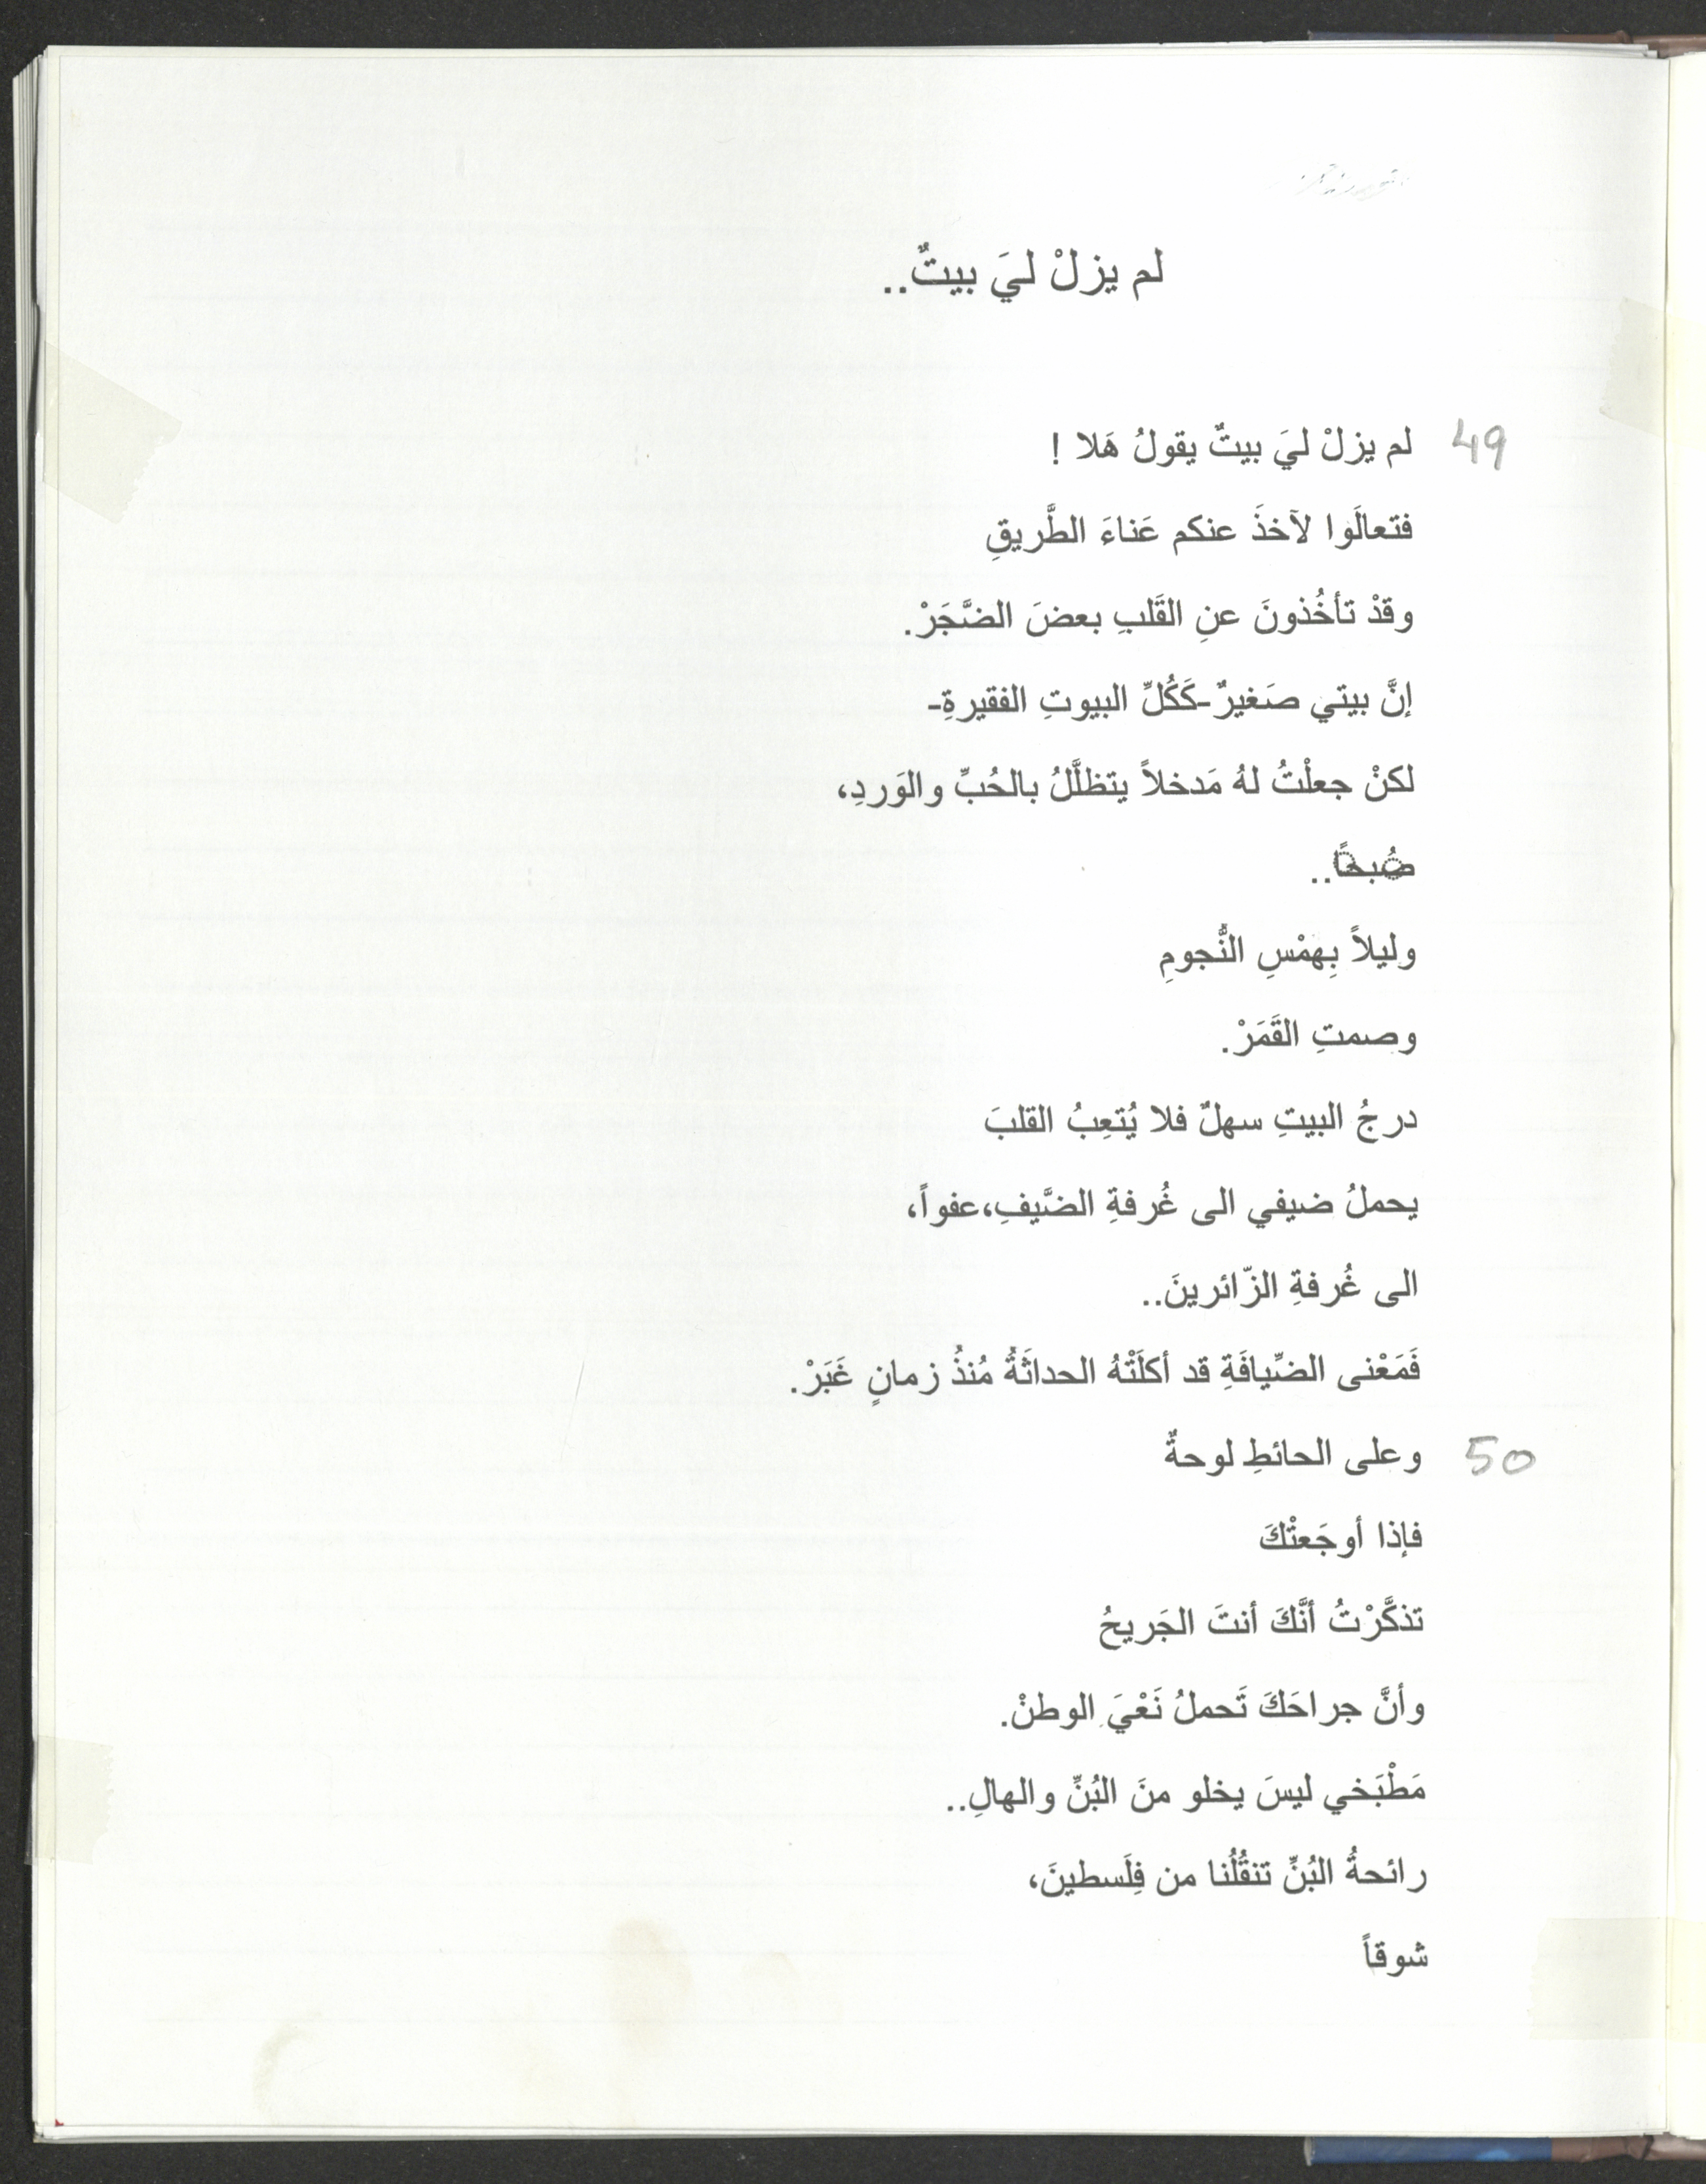 لم يزلْ ليَ بيتٌ..
49 لم يزلْ ليَ بيتٌ يقولُ هَلا !
فتعالَوا لآخذَ عنكم عَناءَ الطَّريقِ
وقدْ تأخُذونَ عنِ القَلبِ بعضَ الضَّجَرْ.
إنَّ بيتي صَغيرٌ-كَكُلِّ البيوتِ الفقيرةِ-
لكنْ جعلْتُ لهُ مَدخلاً يتظلَّلُ بالحُبِّ والوَردِ،
صُبحًا..
وليلاً بِهمْسِ النُّجومِ
وصمتِ القَمَرْ.
درجُ البيتِ سهلٌ فلا يُتعِبُ القلبَ
يحملُ ضيفي الى غُرفةِ الضَّيفِ،عفواً،
الى غُرفةِ الزّائرينَ..
فَمَعْنى الضِّيافَةِ قد أكلَتْهُ الحداثَةُ مُنذُ زمانٍ غَبَرْ.
50 وعلى الحائطِ لوحةٌ
فإذا أوجَعتْكَ
تذكَّرْتُ أنَّكَ أنتَ الجَريحُ
وأنَّ جراحَكَ تَحملُ نَعْيَ الوطنْ.
مَطْبَخي ليسَ يخلو منَ البُنِّ والهالِ..
رائحةُ البُنِّ تنقُلُنا من فِلَسطينَ،
شوقاً